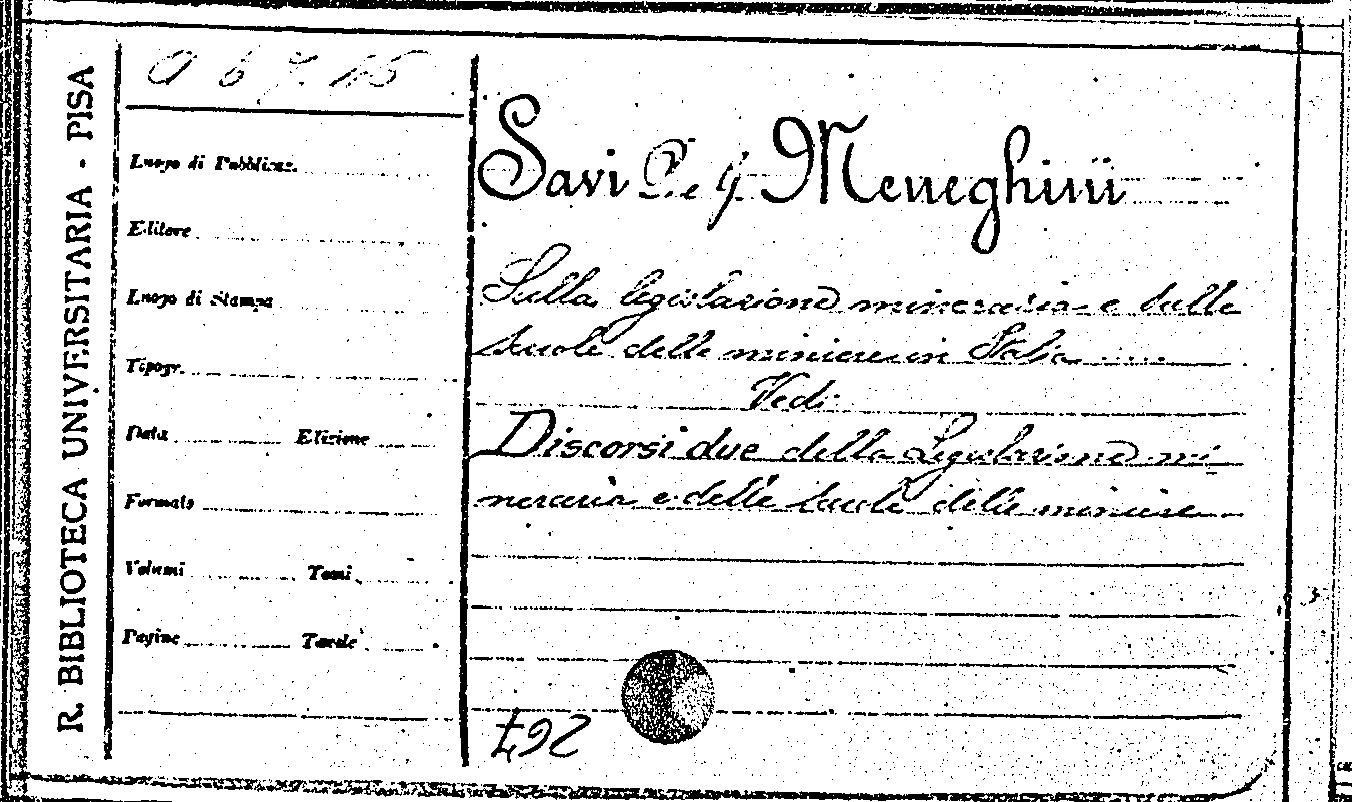 R. BIBLIOTECA UNIVERSITARIA - PISA
a b 7. 15
Luogo di Pubblicaz.
Editore
Luogo di Stampa
Tipogr.
Data Edizione
Formato
Volumi Tomi
Pagine Tavole
Savi P. e G. Meneghini
Sulla legislazione mineraria e sulle
scuole delle miniere in Italia .....
Vedi
Discorsi due della Legislazione mi
neraria e delle scuole delle miniere